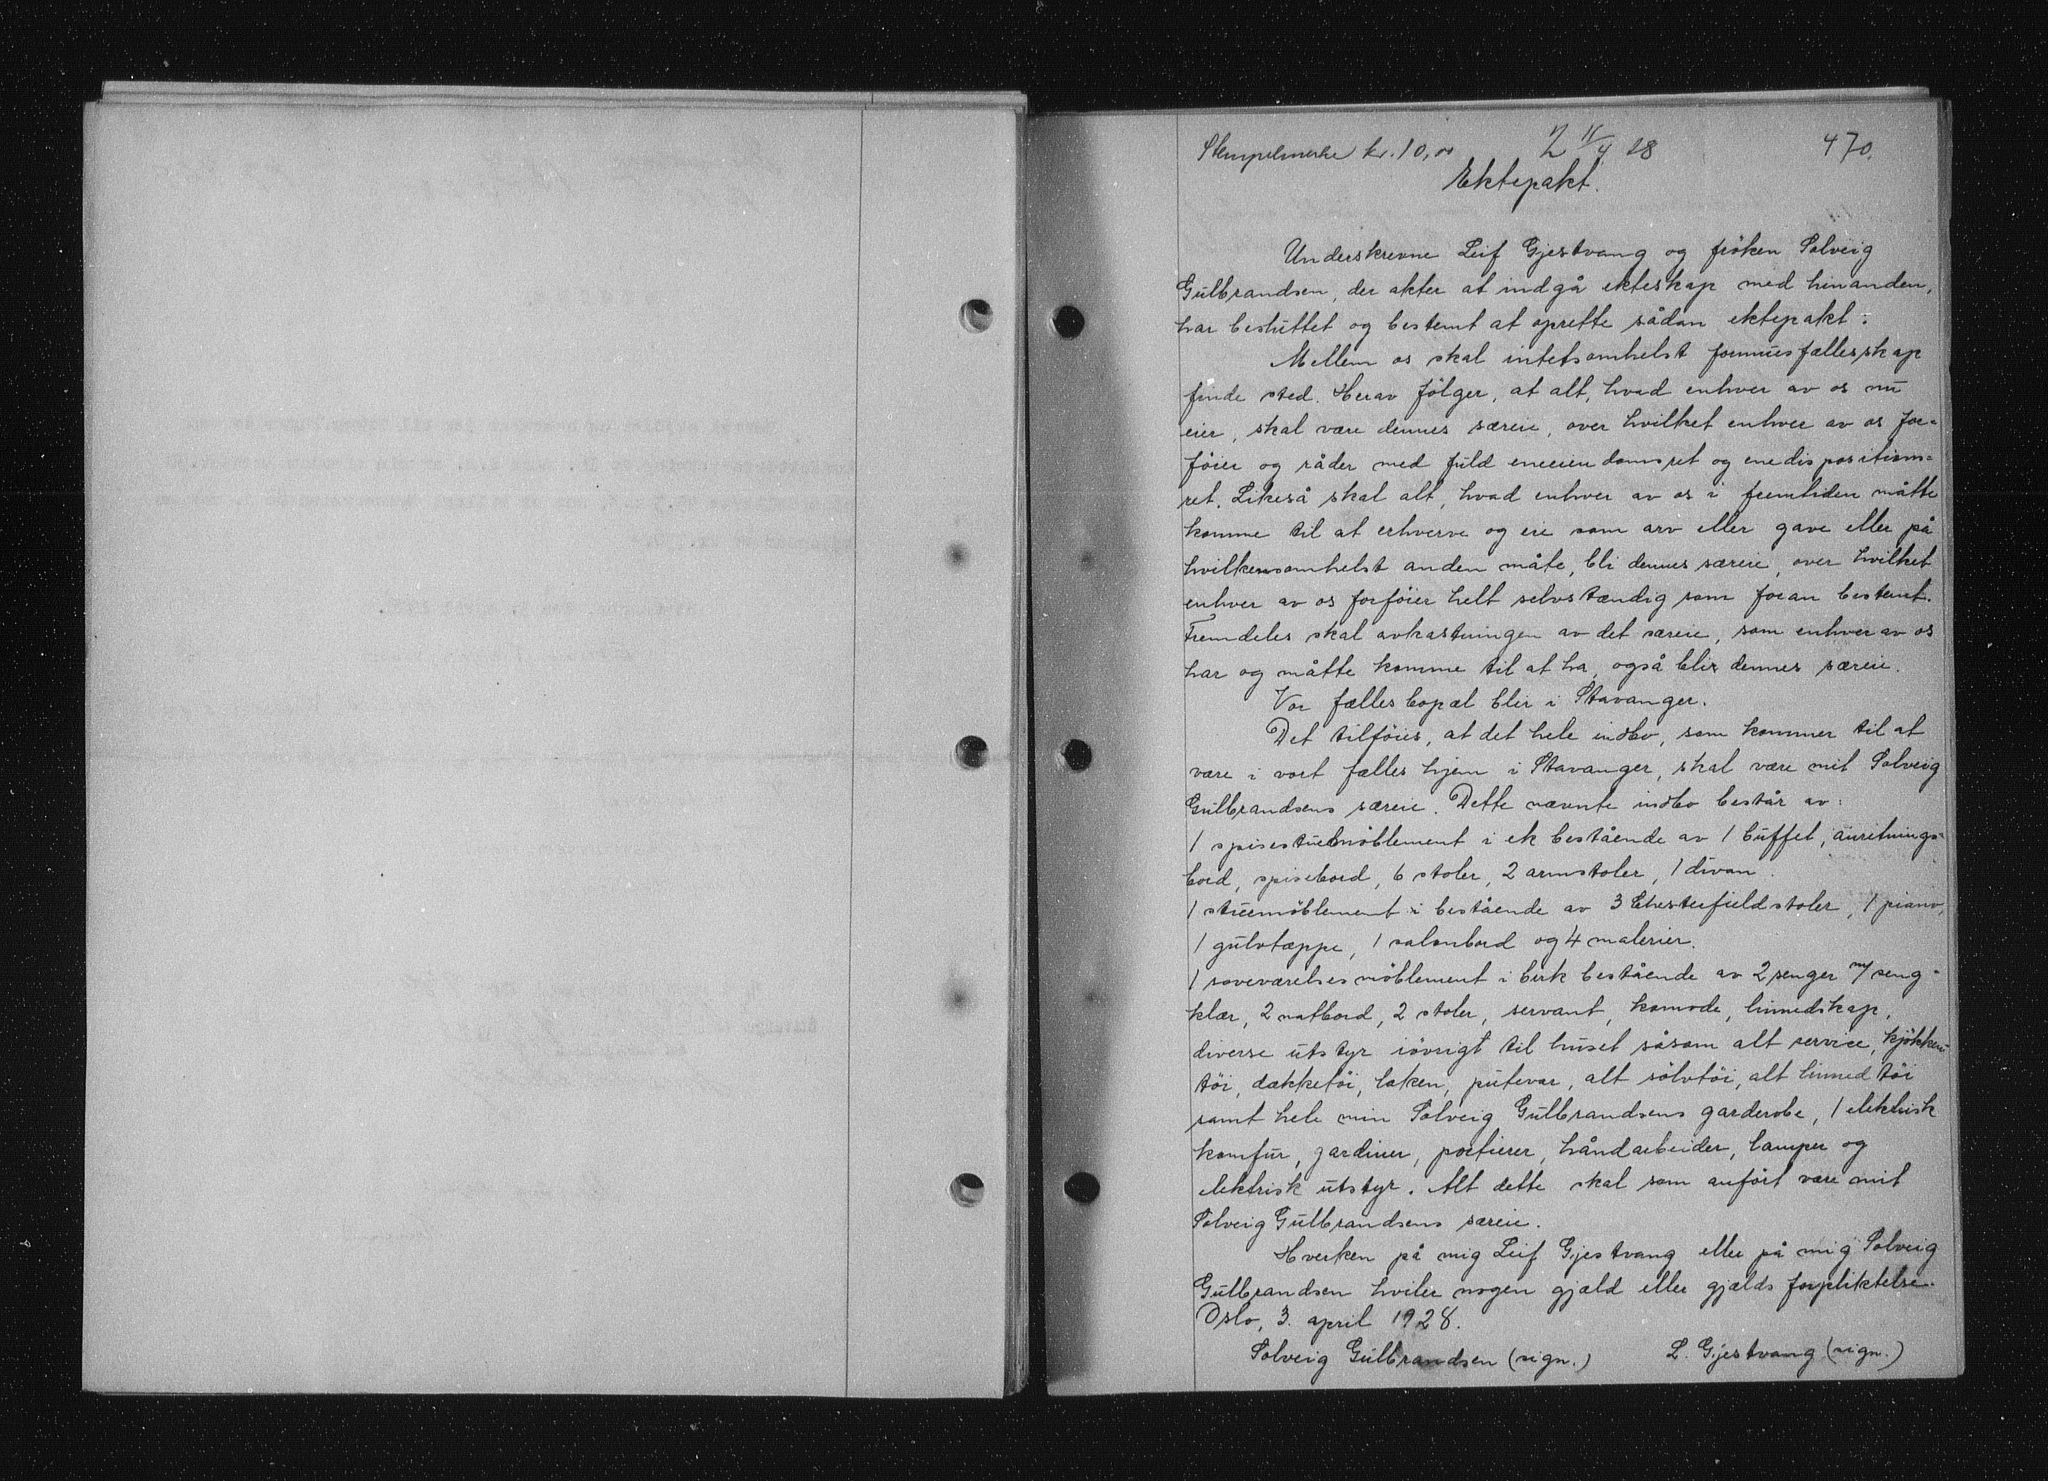 Stempelmerke kr. 10,00 2 11/4 28 470.
Ektepakt.
Underskrevne Leif Gjestvang og frøken Solveig
Gulbrandsen, der akter at indgå ekteskap med hinanden,
har besluttet og bestemt at oprette sådan ektepakt:
Mellem os skal intetsomhelst formuesfællesskap
finde sted. Herav følger, at alt, hvad enhver av os nu
eier, skal være dennes særeie, over hvilket enhver av os for-
føier og råder med fuld eneeiendomsret og enedispositions-
ret. Likeså skal alt, hvad enhver av os i fremtiden måtte
komme til at erhverve og eie som arv eller gave eller på
hvilkensomhelst anden måte, bli dennes særeie, over hvilket
enhver av os forføier helt selvstændig som foran bestemt.
Fremdeles skal avkastningen av det særeie, som enhver av os
har og måtte komme til at ha, også blir dennes særeie.
Vor fælles bopæl blir i Stavanger.
Det tilføies, at det hele indbo, som kommer til at
være i vort fælles hjem i Stavanger, skal være mit Solveig
Gulbrandsens særeie. Dette nævnte indbo består av:
1 spisestuemøblement i ek bestående av 1 buffet, anretnings-
bord, spisebord, 6 stoler, 2 armstoler, 1 divan.
1 stuemøblement i bestående av 3 Chesterfieldstoler, 1 piano,
1 gulvtæppe, 1 salonbord og 4 malerier.
1 soveværelsesmøblement i birk bestående av 2 senger m/ seng-
klær, 2 natbord, 2 stoler, servant, komode, linnedskap,
diverse utstyr iøvrigt til huset såsom alt service, kjøkken-
tøi, dækketøi, laken, putevar, alt sølvtøi, alt linned tøi
samt hele min Solveig Gulbrandsens garderobe, 1 elektrisk
komfur, gardiner, portierer, håndarbeider, lamper og
elektrisk utstyr. Alt dette skal som anført være mit
Solveig Gulbrandsens særeie.
Hverken på mig Leif Gjestvang eller på mig Solveig
Gulbrandsen hviler nogen gjæld eller gjælds forpliktelse.
Oslo, 3. april 1928.
Solveig Gulbrandsen (sign.) L. Gjestvang (sign.)